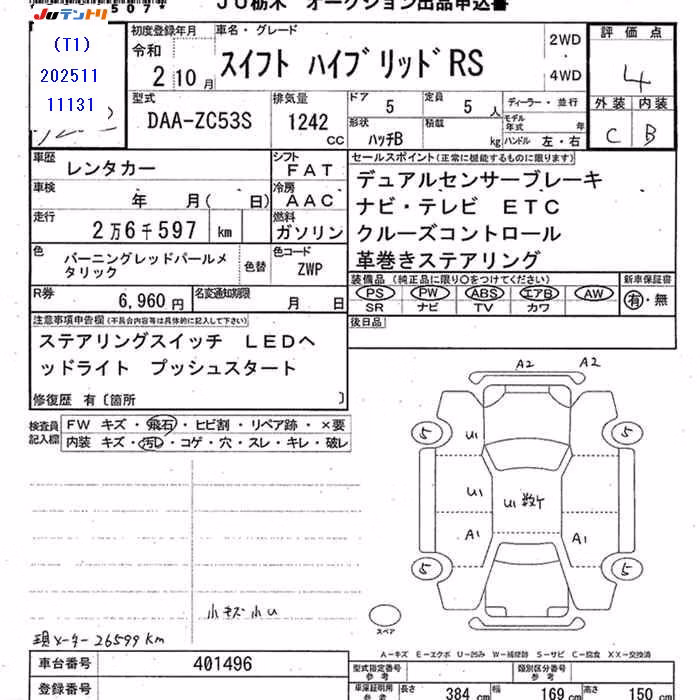 507*
JUテントリ
JU栃木 オークション出品申込書
(T1)
202511
11131
初度登録年月
令和
2年10月
車名・グレード
スイフト ハイブリッドRS
2WD
・
4WD
評価点
4
外装 内装
C B
型式
DAA-ZC53S
排気量
1242 cc
ドア
5
定員
5人
形状
ハッチB
積載
kg
ディーラー・並行
モデル年式 年
ハンドル 左・右
車歴
レンタカー
シフト
FAT
車検
年 月( 日)
冷房
AAC
走行
2万6千597 km
燃料
ガソリン
色
バーニングレッドパールメタリック
色替
色コード
ZWP
R券
6,960円
名変通知期限
月 日
セールスポイント(正常に機能するものに限ります)
デュアルセンサーブレーキ
ナビ・テレビ ETC
クルーズコントロール
革巻きステアリング
装備品(純正品に限り○をつけてください)
PS PW ABS エアB AW
SR ナビ TV カワ
新車保証書
有・無
後日品
注意事項申告欄(不具合内容等は具体的に記入して下さい)
ステアリングスイッチ LEDヘ
ッドライト プッシュスタート
修復歴 有〔箇所 〕
検査員記入欄
FW キズ・飛石・ヒビ割・リペア跡・×要
内装 キズ・汚レ・コゲ・穴・スレ・キレ・破レ
A2 A2
5 U1 5
U1 U1数ケ
A1 A1
5 5
小キズ小U
スペア
現メーター26599km
A-キズ E-エクボ U-凹み W-補修跡 S-サビ C-腐食 XX-交換済
車台番号
401496
登録番号
型式指定番号
参考
類別区分番号
参考
車庫証明用
参考
長さ 384 cm
幅 169 cm
高さ 150 cm